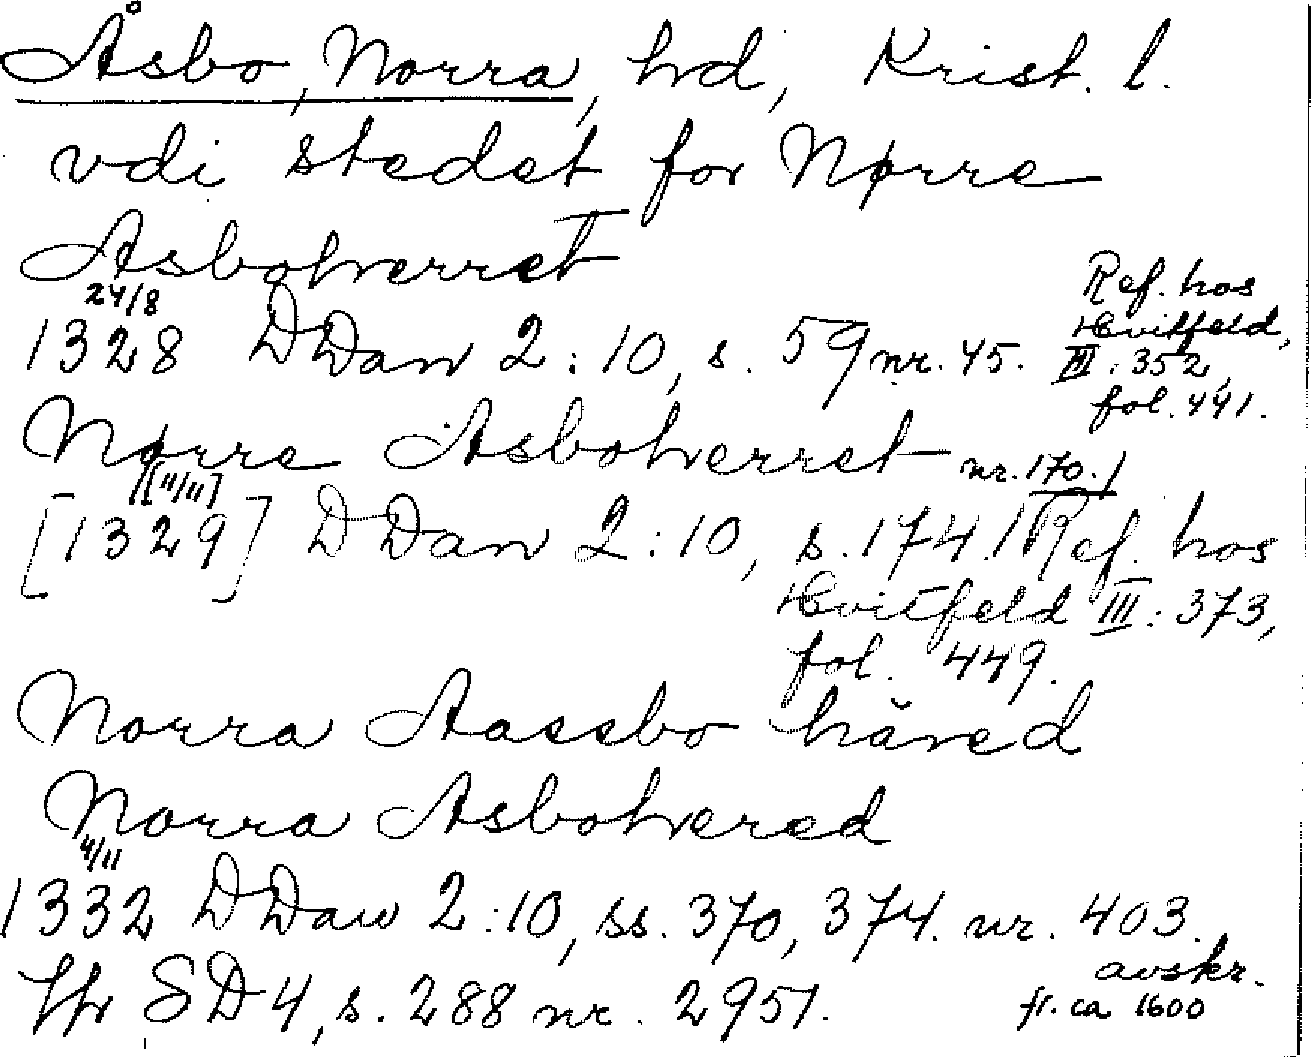 Åsbo, Norra, hrd, Krist. l.
vdi stedet for Nørre
Asboherret
24/8
1328 DDan 2:10, s. 59 nr. 45. Ref. hos
Hvitfeld,
III: 352,
fol. 441.
Nørre Asboherret nr. 170.
[11/11]
[1329] DDan 2:10, s. 174. Ref. hos
Hvitfeld III: 373,
fol. 449.
Norra Aassbo häred
Norra Asbohered
4/11
1332 DDan 2:10, ss. 370, 374. nr. 403.
avskr.
fr. ca 1600
Jfr SD 4, s. 288 nr. 2951.